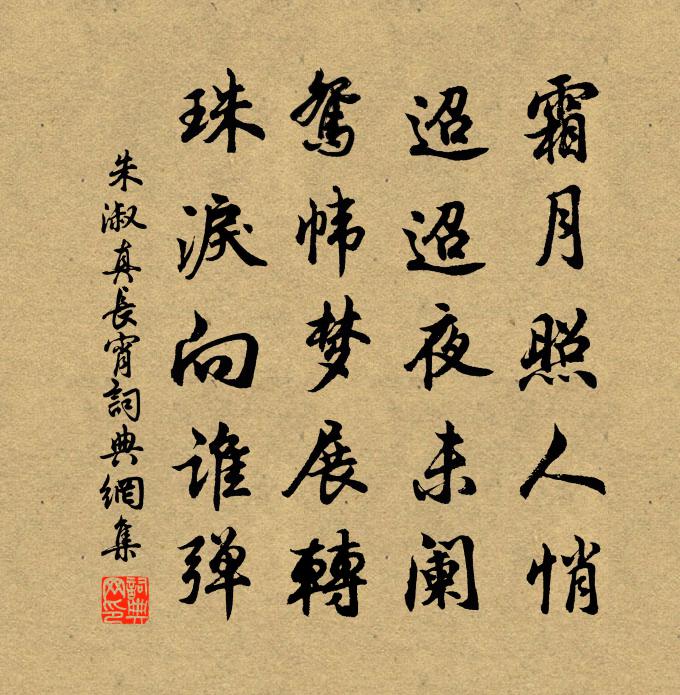 霜月照人悄
迢迢夜未阑
鸳帏梦展轉
珠淚向谁弹
朱淑真長宵詞典網集
詞典網印